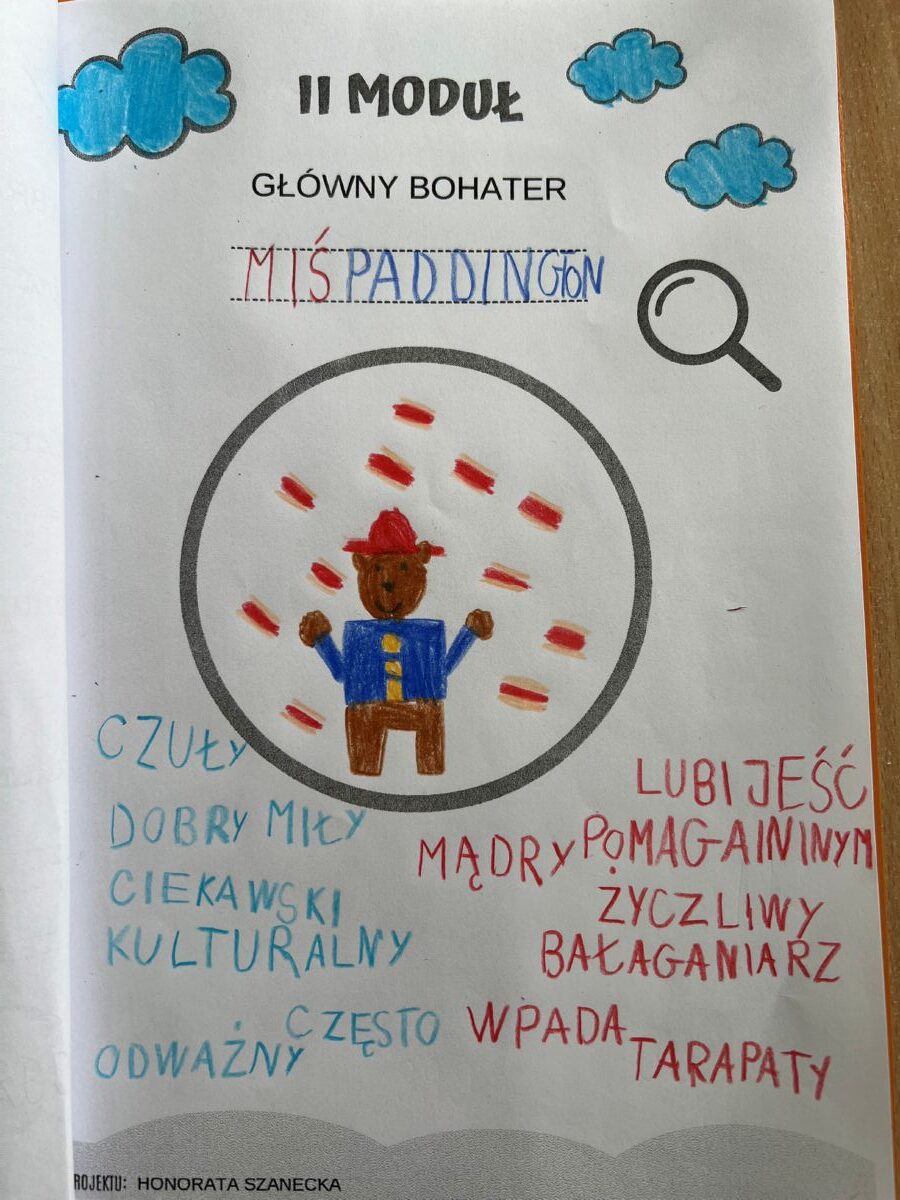 II MODUŁ
GŁÓWNY BOHATER
MIŚ PADDINGTON
CZUŁY
DOBRY MIŁY
CIEKAWSKI
KULTURALNY
ODWAŻNY
LUBI JEŚĆ
MĄDRY POMAGAININYM
ŻYCZLIWY
BAŁAGANIARZ
CZĘSTO WPADA
TARAPATY
ROJEKTU: HONORATA SZANECKA